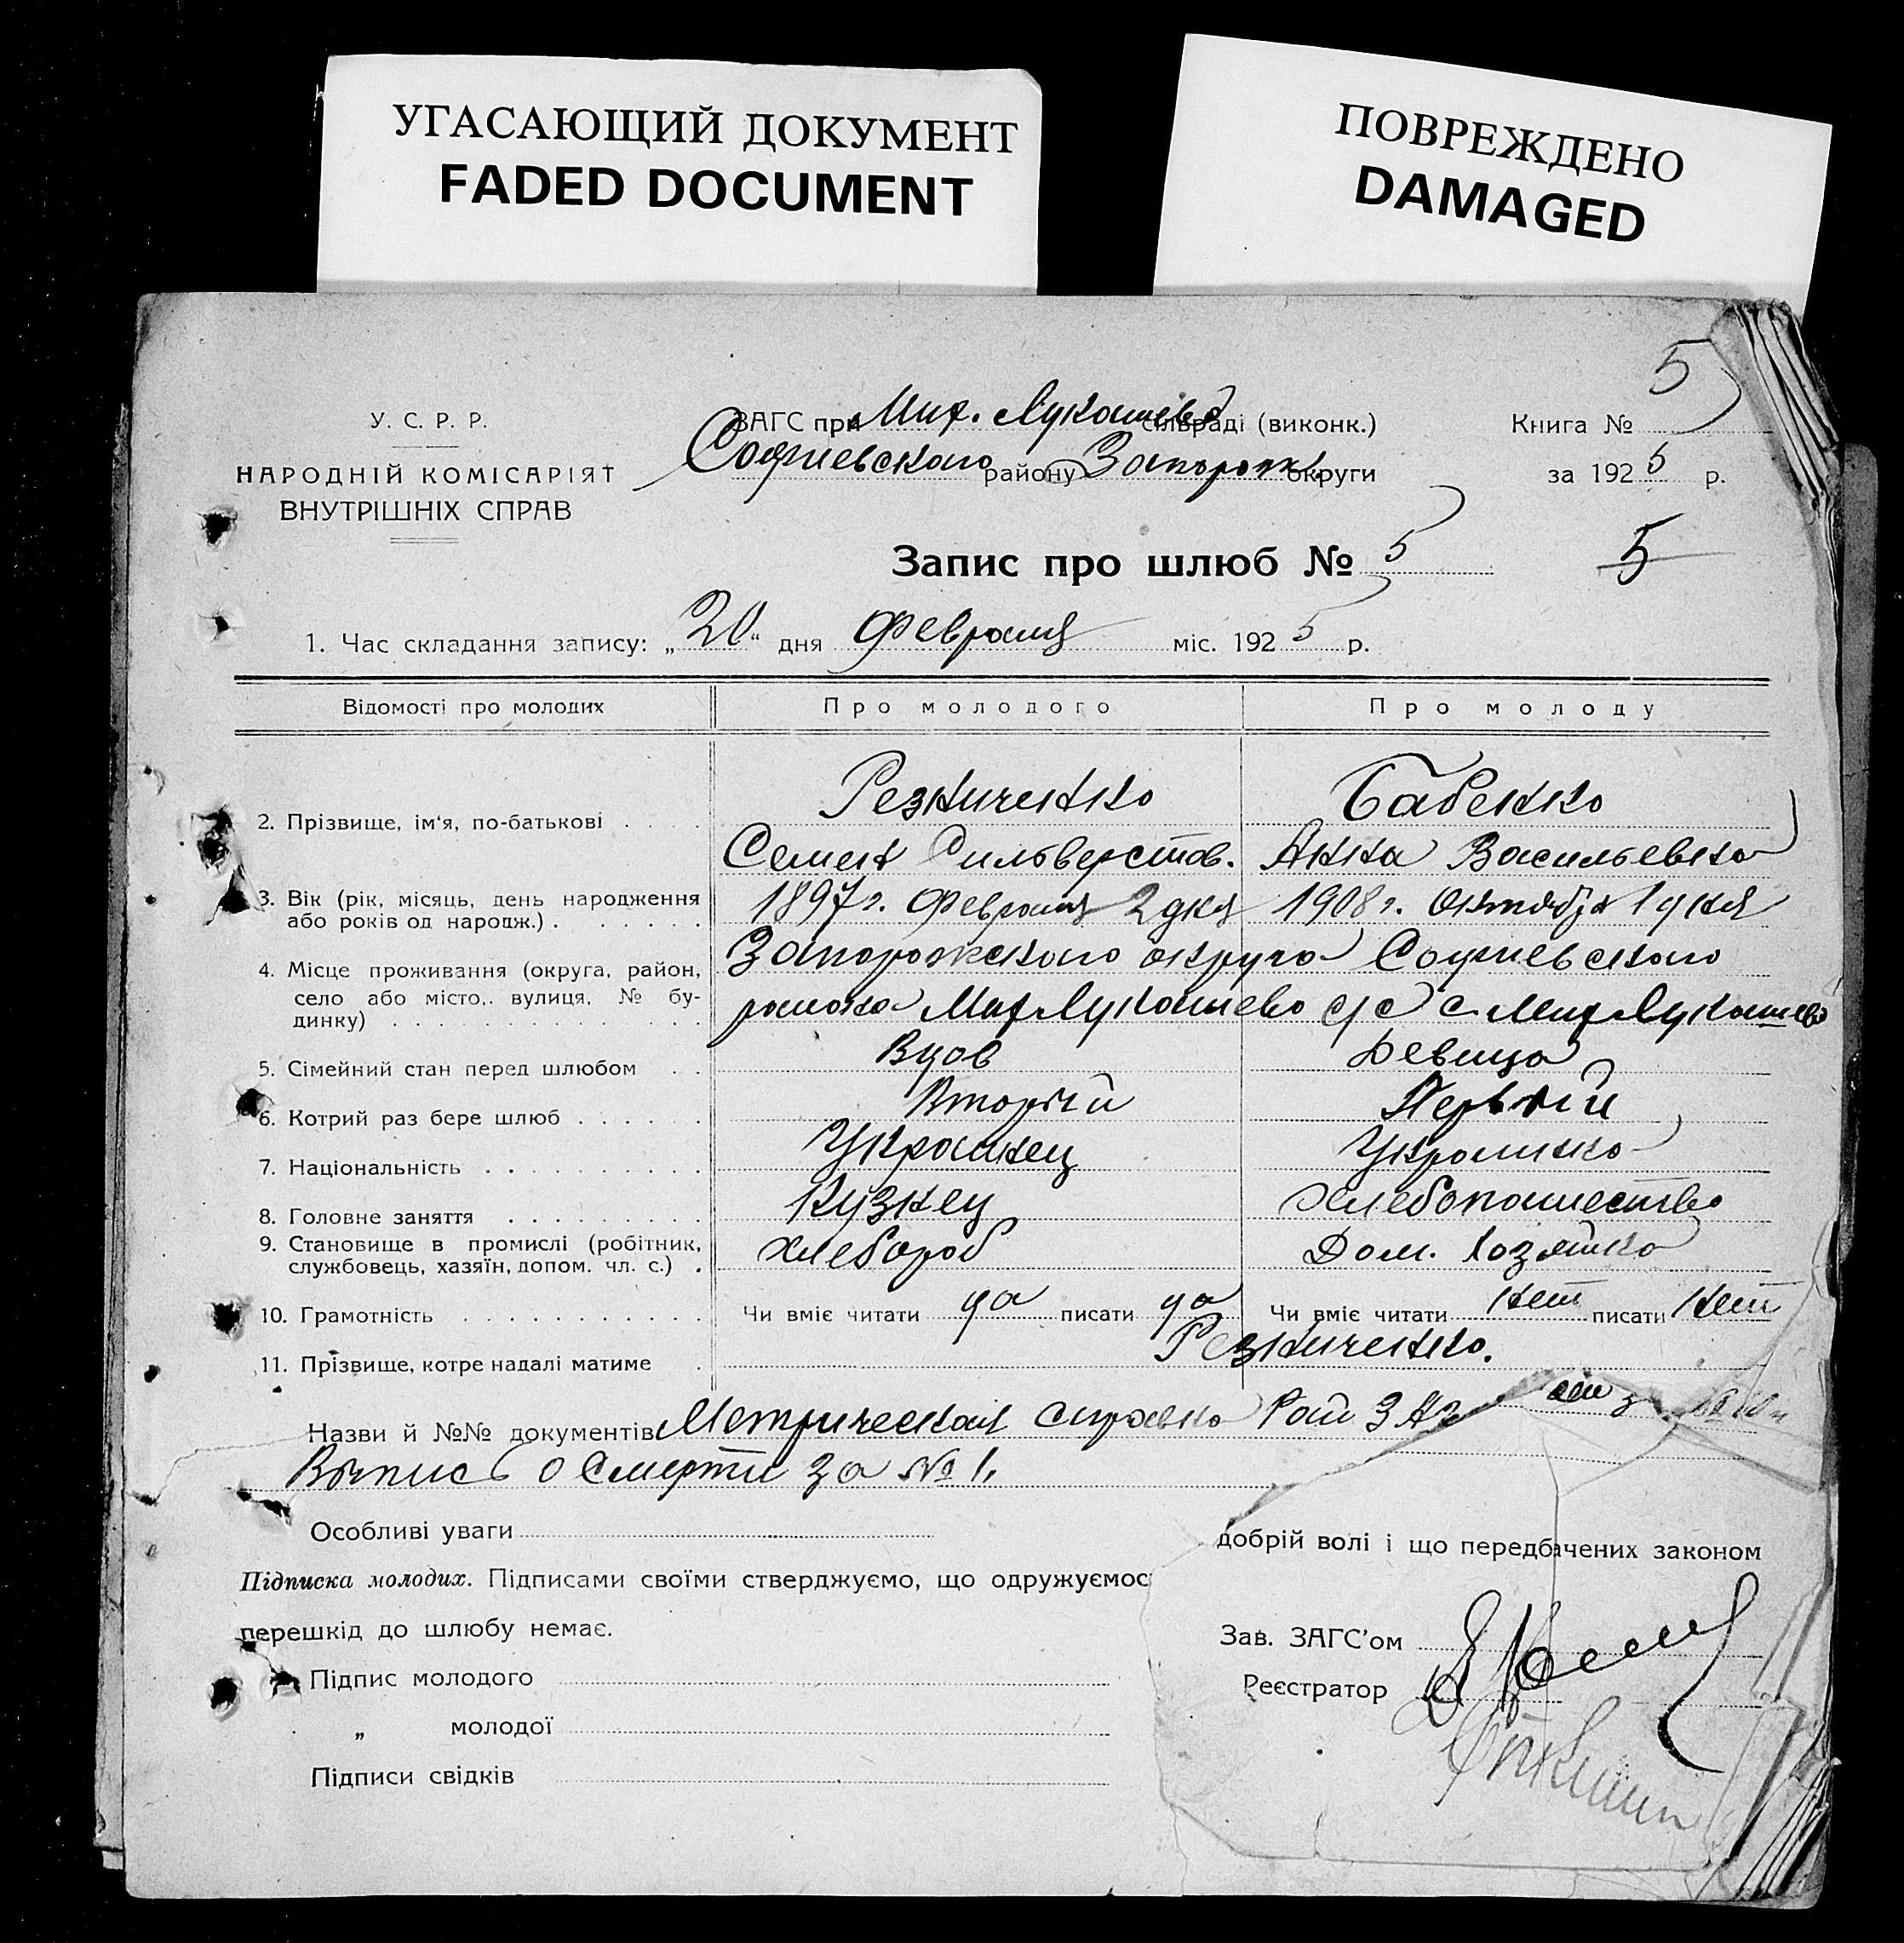 УГАСАЮЩИЙ ДОКУМЕНТ
FADED DOCUMENT
ПОВРЕЖДЕНО
DAMAGED
5
У. С. Р. Р.
НАРОДНІЙ КОМІСАРІЯТ
ВНУТРІШНІХ СПРАВ
ЗАГС при Мих. Лукашево сільраді (виконк.)
Софиевского району Запорож. округи
Книга №
за 1925 р.
Запис про шлюб № 5
5
1. Час складання запису: „20“ дня Февраля міс. 1925 р.
Відомості про молодих Про молодого Про молоду
2. Прізвище, ім'я, по-батькові . . . . Резниченко Бабенко
Семен Сильверстов. Анна Васильевна
3. Вік (рік, місяць, день народження або років од народж.) . . . . . . . 1897г. Февраля 2 дня 1908г. Октября 1 дня
4. Місце проживання (округа, район, село або місто,. вулиця, № будинку) . . . . . . . . . . . . . . Запорожского округа Софиевского
района Мих Лукашево с/с с. Мих Лукашево
5. Сімейний стан перед шлюбом . . Вдов Девица
6. Котрий раз бере шлюб . . . . . . Вторый Первый
7. Національність . . . . . . . . . . Украинец Украинка
8. Головне заняття . . . . . . . . . Кузнец Хлебопашество
9. Становище в промислі (робітник, службовець, хазяїн, допом. чл. с.) . Хлебороб Дом. Хозяйка
10. Грамотність . . . . . . . . . . . Чи вміє читати да писати да Чи вміє читати нет писати нет
11. Прізвище, котре надалі матиме . Резниченко.
Назви й №№ документів Метрическая справка
Выпись о Смерти за № 1.
Особливі уваги
добрій волі і що передбачених законом
Підписка молодих. Підписами своїми стверджуємо, що одружуємос
перешкід до шлюбу немає.
Зав. ЗАГС’ом
Підпис молодого
Реєстратор
„ молодої
Підписи свідків